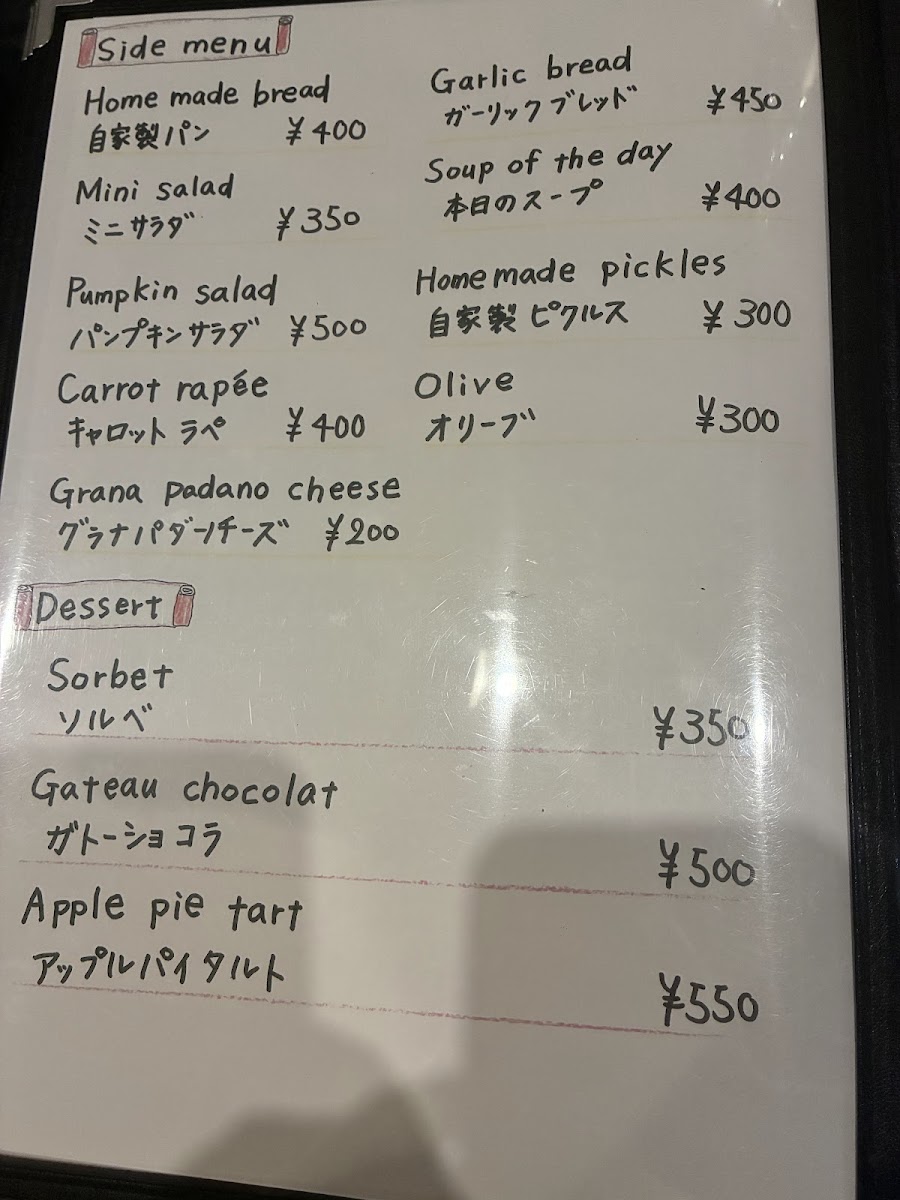 Side menu
Home made bread
自家製パン ¥400
Mini salad
ミニサラダ ¥350
Pumpkin salad
パンプキンサラダ ¥500
Carrot rapée
キャロットラペ ¥400
Grana padano cheese
グラナパダーノチーズ ¥200
Garlic bread
ガーリックブレッド ¥450
Soup of the day
本日のスープ ¥400
Homemade pickles
自家製ピクルス ¥300
Olive
オリーブ ¥300
Dessert
Sorbet
ソルベ ¥350
Gateau chocolat
ガトーショコラ ¥500
Apple pie tart
アップルパイタルト ¥550